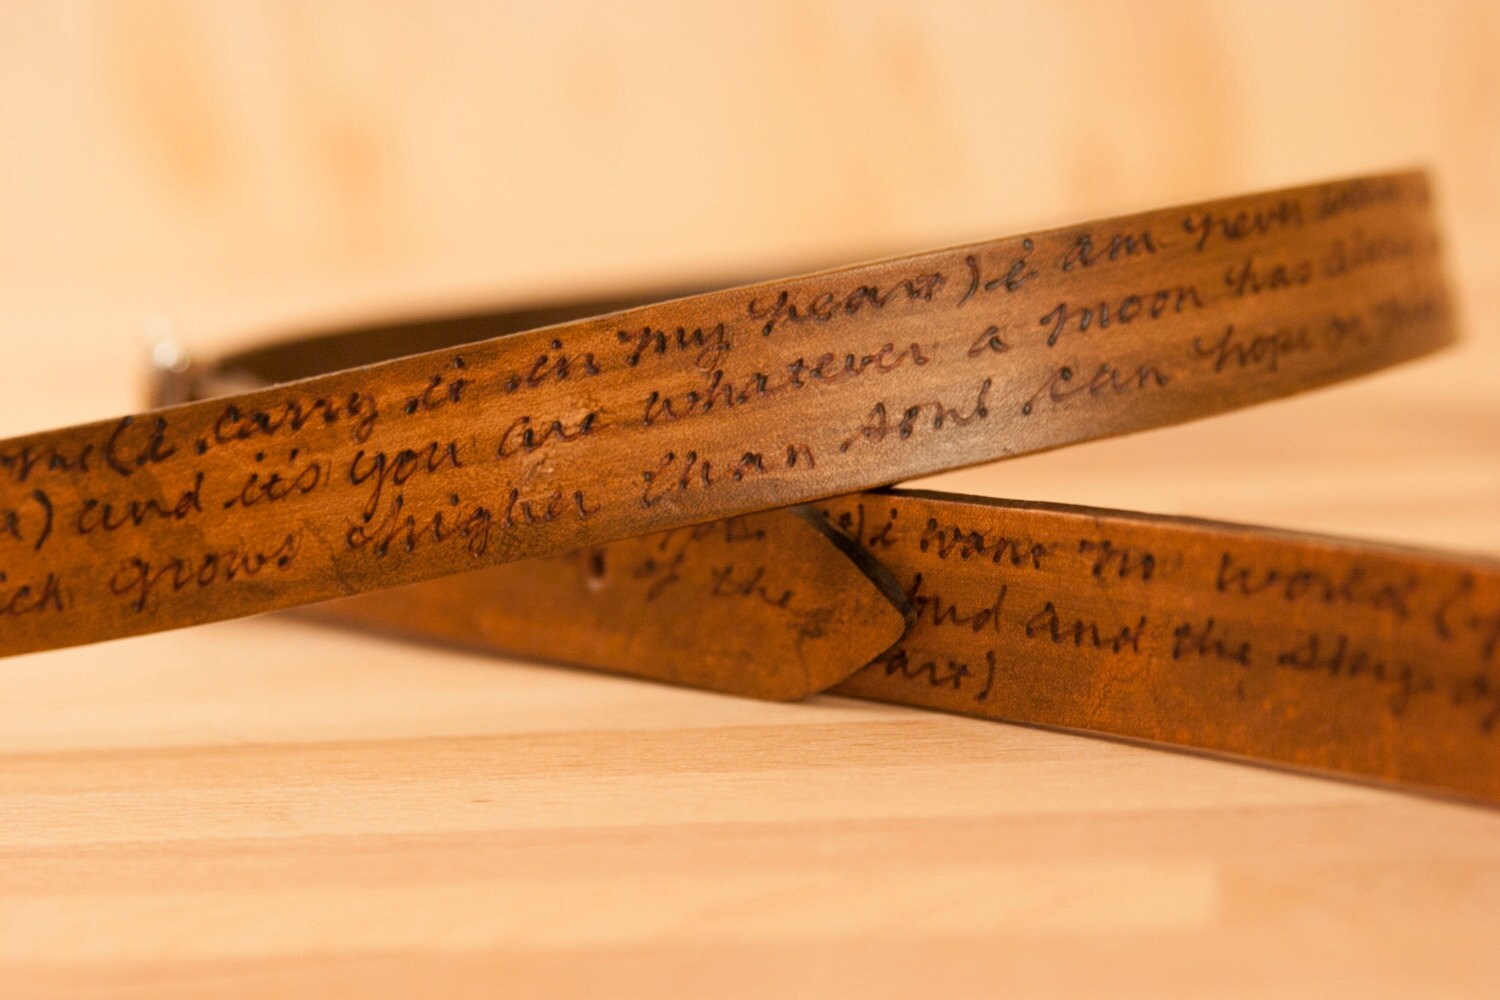 me(i carry it in my heart)i am never
) and it's you are whatever a moon has always
grows higher than soul can hope or
i want no world(
of the
and the sky of